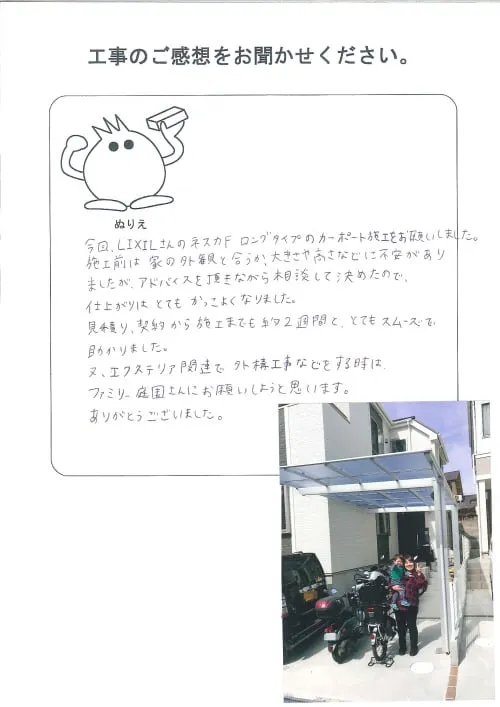 工事のご感想をお聞かせください。
ぬりえ
今回、LIXILさんのネスカF ロングタイプのカーポート施工をお願いしました。
施工前は 家の外観と合うか、大きさや高さなどに不安があり
ましたが、アドバイスを頂きながら相談して決めたので、
仕上がりは とても かっこよくなりました。
見積り、契約から 施工までも 約2週間と、とてもスムーズで、
助かりました。
又、エクステリア関連で 外構工事などをする時は、
ファミリー庭園さんにお願いしようと思います。
ありがとうございました。